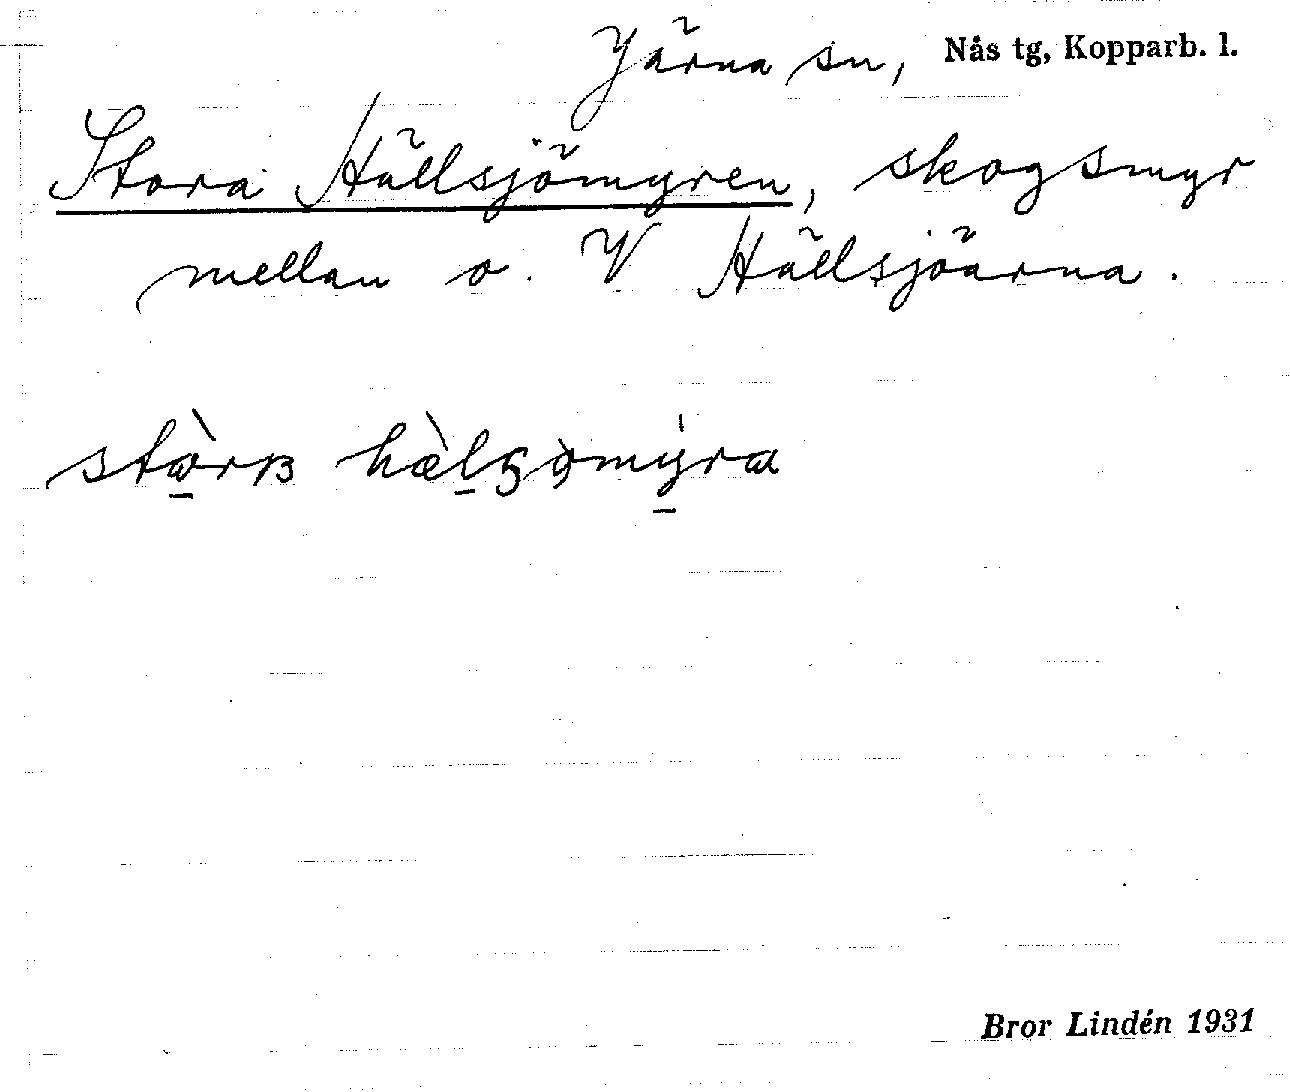 Järna sn, Nås tg, Kopparb. l.
Stora Hällsjömyren, skogsmyr
mellan o. V Hällsjöarna.
Bror Lindén 1931